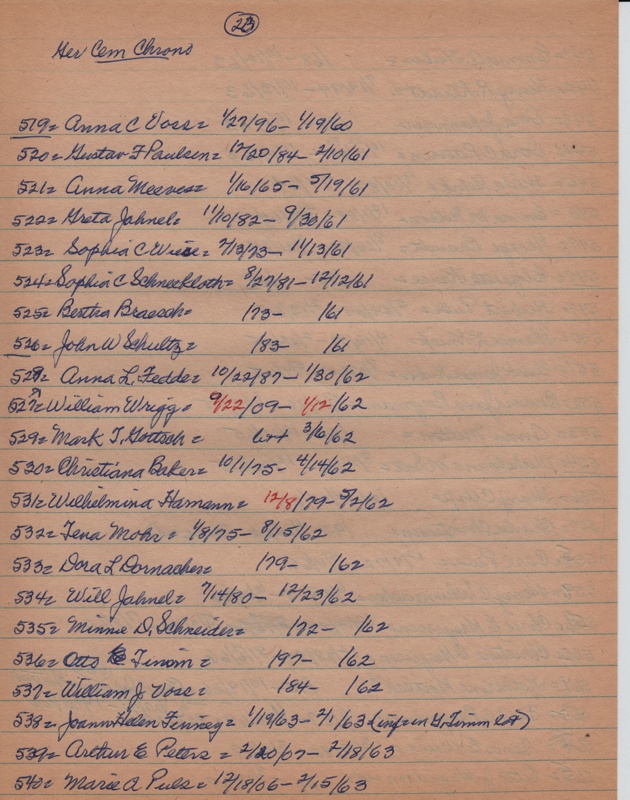 23
Ger Cem Chrono
519= Anna C Voss= 1/27/96- 1/19/60
520= Gustav F Paulsen= 12/20/84- 2/10/61
521= Anna Meeves= 1/16/65- 5/19/61
522= Greta Jahnel= 11/10/82- 9/30/61
523= Sophia C Wiese= 7/13/73- 11/13/61
524= Sophia C Schneekloth= 8/27/81- 12/12/61
525= Bertha Braesch= /73- /61
526= John W Schultz= /83- /61
528= Anna L. Fedde= 10/22/87- 1/30/62
527= William Wrigg= 9/22/09- 1/12/62
529= Mark T. Gottsch= 3/6/62
530= Christiana Baker= 10/1/75- 4/14/62
531= Wilhelmina Hamann= 12/8/79- 5/2/62
532= Tena Mohr= 1/8/75- 8/15/62
533= Dora L Dornacher= /79- /62
534= Will Jahnel= 7/14/80- 12/23/62
535= Minnie D. Schneider= /72- /62
536= Otto Timm= /97- /62
537= William J. Voss= /84- /62
538= Joann Helen Finney= 1/19/63- 2/1/63 (inf= in G. Timm lot)
539= Arthur E Peters= 2/20/07- 2/18/63
540= Marie A Puls= 12/18/06- 2/15/63